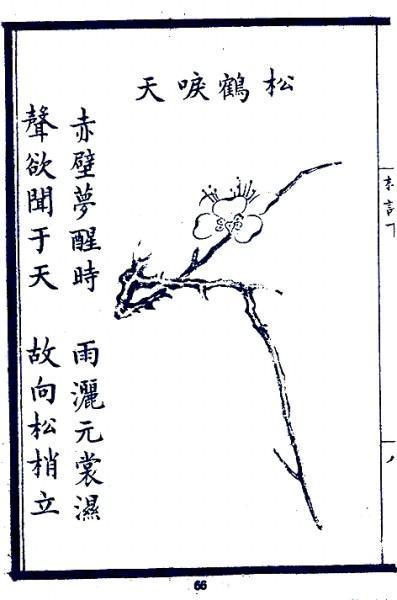 松鶴唳天
赤壁夢醒時 雨灑元裳濕
聲欲聞于天 故向松梢立
66